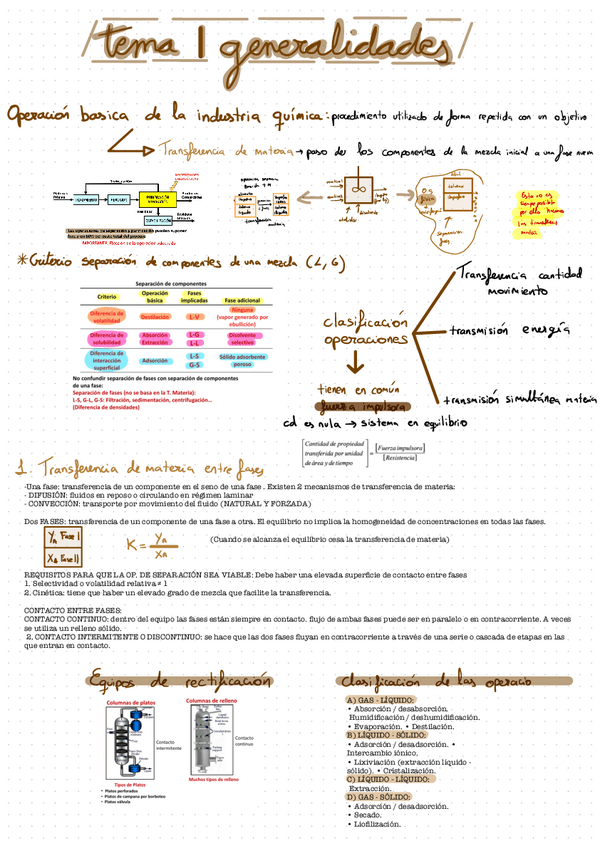 tema 1 generalidades
Operación basica de la industria química: procedimiento utilizado de forma repetida con un objetivo
Transferencia de materia → paso de los componentes de la mezcla inicial a una fase nueva
Esto no es
siempre posible
*Criterio separación de componentes de una mezcla (L, G)
Separación de componentes
Criterio Operación básica Fases implicadas Fase adicional
Diferencia de volatilidad Destilación L-V Ninguna (vapor generado por ebullición)
Diferencia de solubilidad Absorción Extracción L-G L-L Disolvente selectivo
Diferencia de interacción superficial Adsorción L-S G-S Sólido adsorbente poroso
No confundir separación de fases con separación de componentes
de una fase:
Separación de fases (no se basa en la T. Materia):
L-S, G-L, G-S: Filtración, sedimentación, centrifugación...
(Diferencia de densidades)
clasificación
operaciones
Transferencia cantidad
movimiento
transmisión energía
transmisión simultánea materia
tienen en común
fuerza impulsora
cd es nula → sistema en equilibrio
[Cantidad de propiedad
transferida por unidad
de área y de tiempo] = [Fuerza impulsora] / [Resistencia]
1. Transferencia de materia entre fases
-Una fase: transferencia de un componente en el seno de una fase . Existen 2 mecanismos de transferencia de materia:
- DIFUSIÓN: fluidos en reposo o circulando en régimen laminar
- CONVECCIÓN: transporte por movimiento del fluido (NATURAL Y FORZADA)
Dos FASES: transferencia de un componente de una fase a otra. El equilibrio no implica la homogeneidad de concentraciones en todas las fases.
YA Fase I
XA Fase II
K = YA / XA
(Cuando se alcanza el equilibrio cesa la transferencia de materia)
REQUISITOS PARA QUE LA OP. DE SEPARACIÓN SEA VIABLE: Debe haber una elevada superficie de contacto entre fases
1. Selectividad o volatilidad relativa ≠ 1
2. Cinética: tiene que haber un elevado grado de mezcla que facilite la transferencia.
CONTACTO ENTRE FASES:
CONTACTO CONTINUO: dentro del equipo las fases están siempre en contacto. flujo de ambas fases puede ser en paralelo o en contracorriente. A veces
se utiliza un relleno sólido.
2. CONTACTO INTERMITENTE O DISCONTINUO: se hace que las dos fases fluyan en contracorriente a través de una serie o cascada de etapas en las
que entran en contacto.
Equipos de rectificación
Columnas de platos
Contacto
intermitente
Tipos de Platos
• Platos perforados
• Platos de campana por borboteo
• Platos válvula
Columnas de relleno
Contacto
continuo
Muchos tipos de relleno
Clasificación de las operacio
A) GAS - LÍQUIDO:
• Absorción / desabsorción.
Humidificación / deshumidificación.
• Evaporación. • Destilación.
B) LÍQUIDO - SÓLIDO:
• Adsorción / desadsorción. •
Intercambio iónico.
• Lixiviación (extracción líquido -
sólido). • Cristalización.
C) LÍQUIDO - LÍQUIDO:
Extracción.
D) GAS - SÓLIDO:
• Adsorción / desadsorción.
• Secado.
• Liofilización.